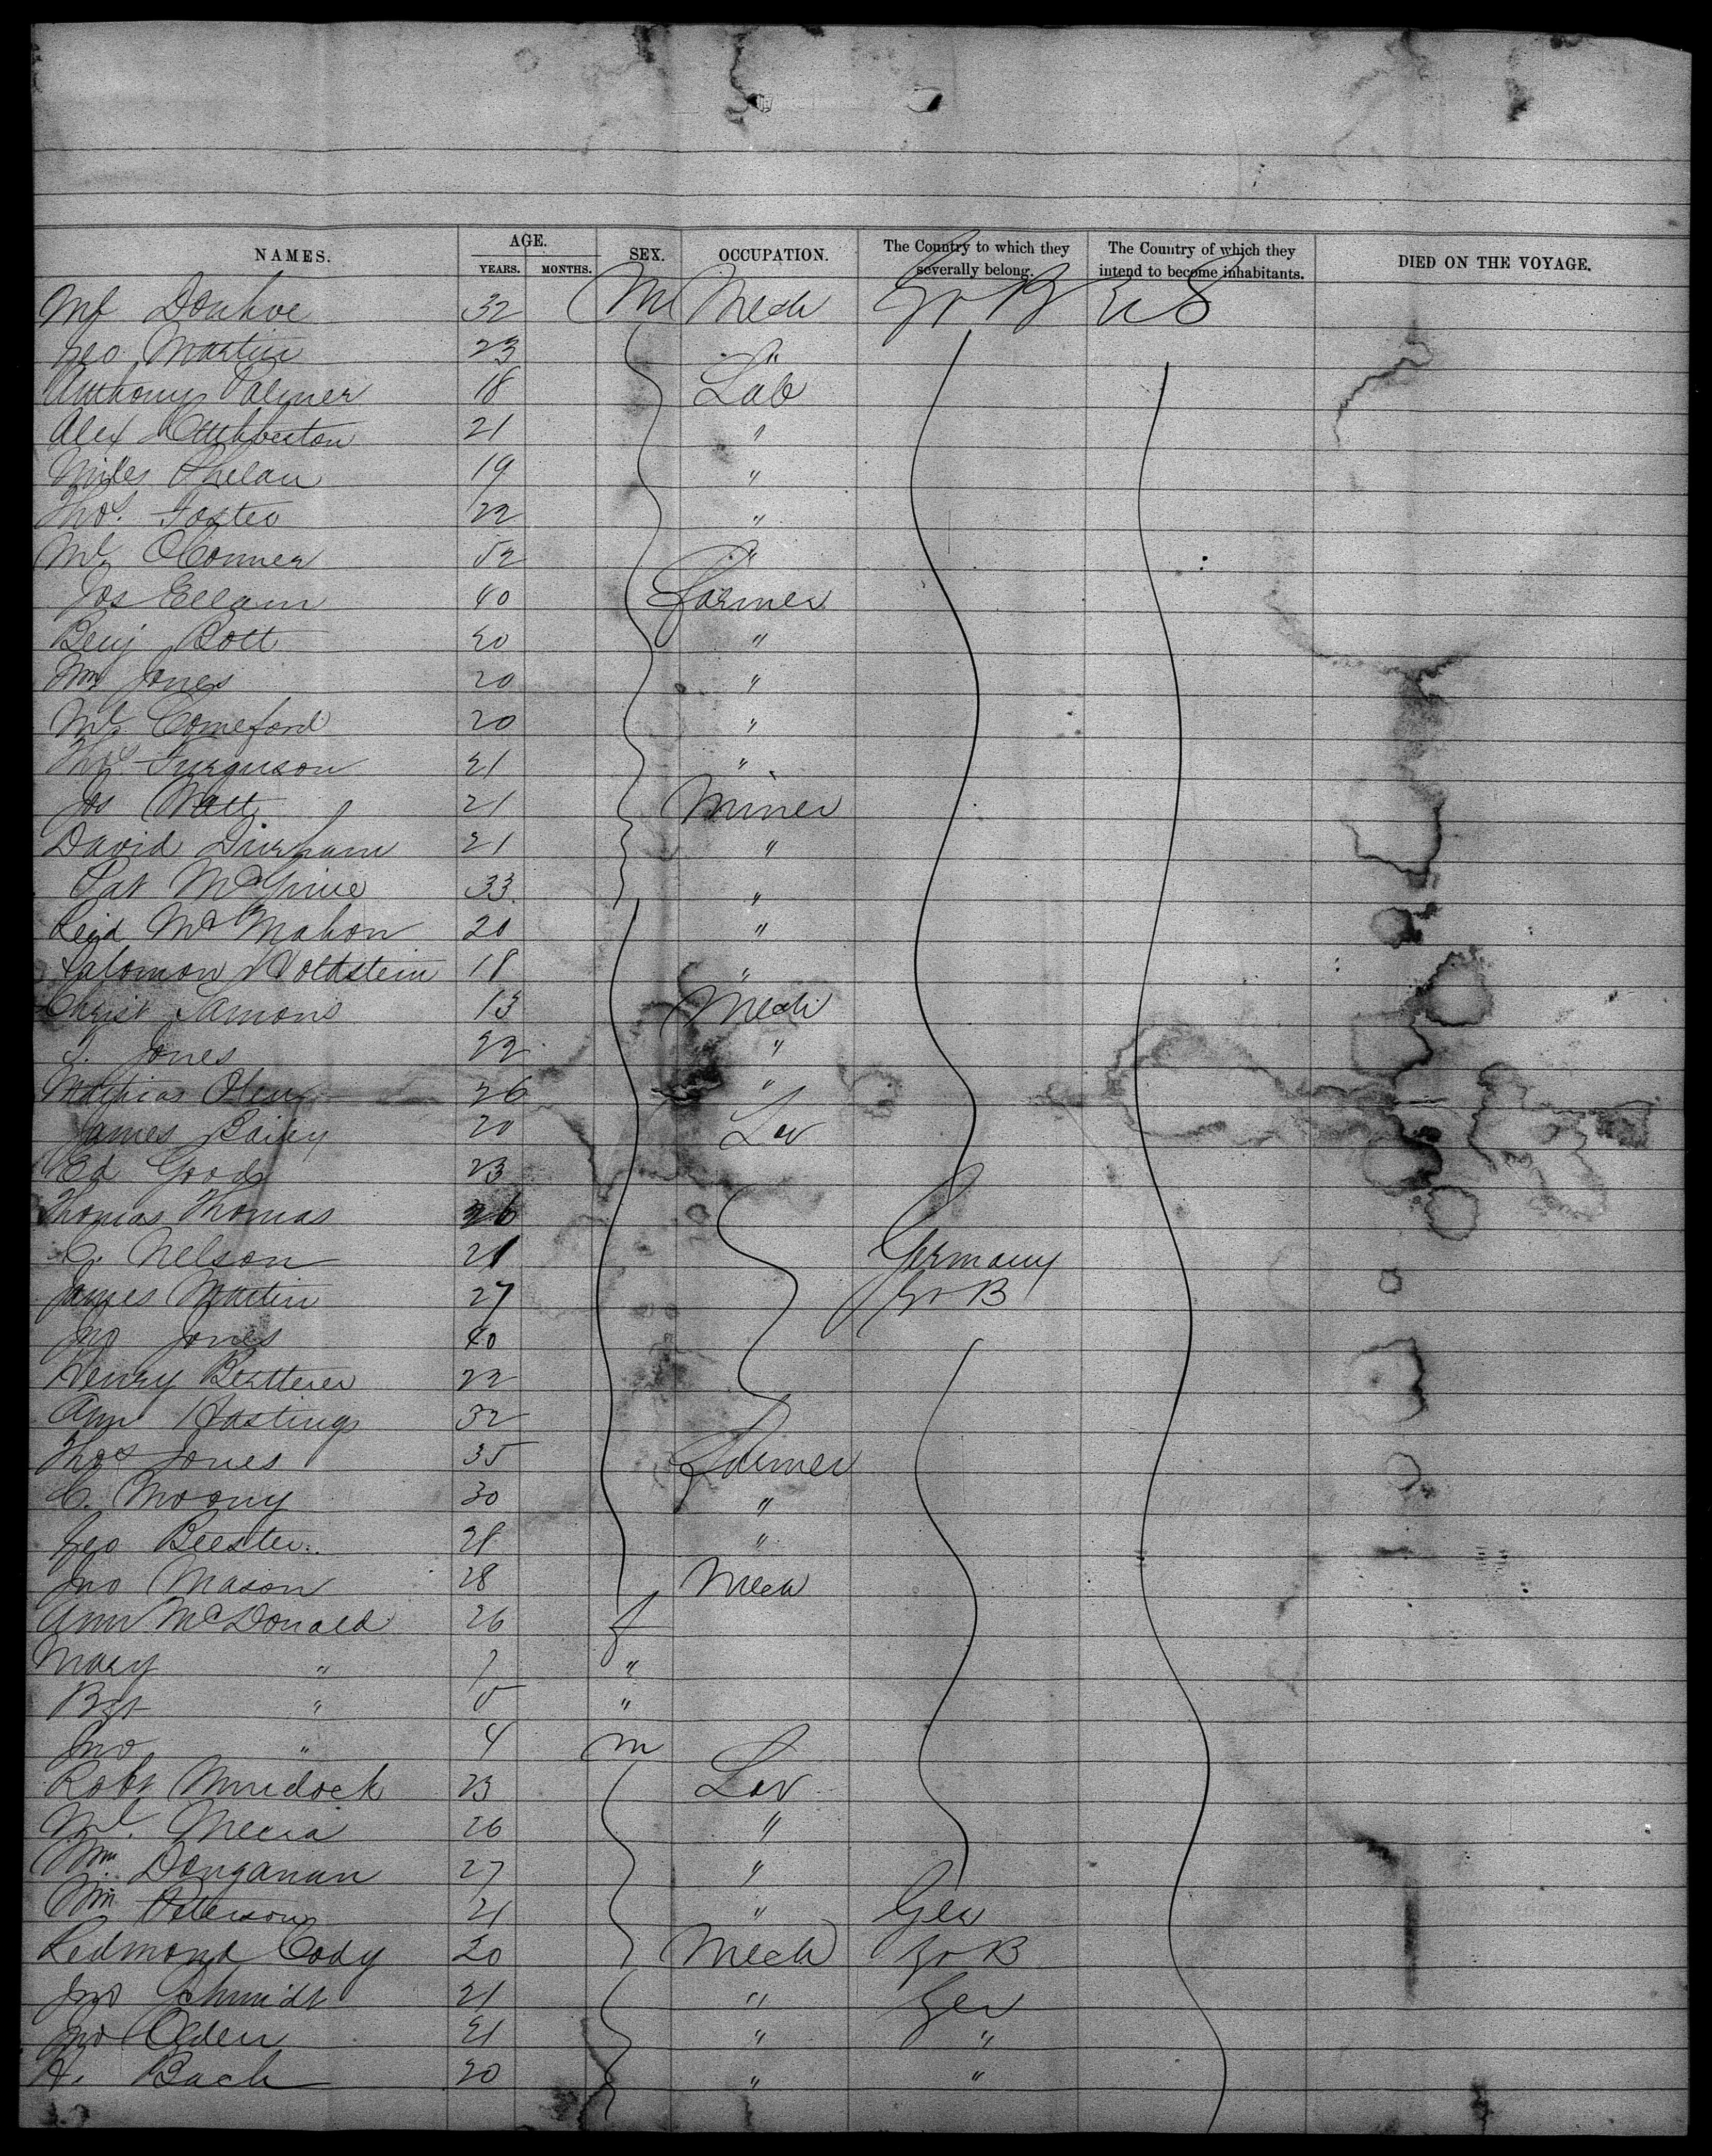 NAMES. AGE. YEARS. MONTHS. SEX. OCCUPATION. The Country to which they severally belong. The Country of which they intend to become inhabitants. DIED ON THE VOYAGE.
Ml Donhoe 32 M Mech Gr B U S
Geo Martin 23 "
Anthony Palmer 18 Lab
Alex Cuthbertson 21 "
Miles Phelan 19 "
Thos. Foster 22 "
Ml O'Conner 52 "
Jos Ellam 40 Farmer
Benj Bott 20 "
Wm Jones 20 "
Ml Comeford 20 "
Thos Furguson 21 "
Jos Watt 21 Miner
David Durham 21 "
Pat 33 "
Regd McMahon 20 "
Salomon 18 "
Christ Samons 13 Mech
T. Jones 22 "
Mathias Olen 26 "
James Bailey 20 Lav
Ed Good 23
Thomas Thomas 26
C. Nelson 21 Germany
James Martin 27 Gr B
Jno Jones 40
Henry 22
Ann Hastings 32
Thos Jones 35 Farmer
C. Moony 30 "
Geo Beester 28 "
Jno Mason 28 Mech
Ann McDonald 26 f
Mary " 7 "
Bgt " 5 "
Jno " 4 m
Robt Murdock 23 Lav
Ml. Mecia 26 "
Wm. Donganan 27 "
Wm Peterson 21 " Ger
Redmond Cody 20 Mech Gr B
Jno Schmidt 21 " Ger
Jno Olden 21 " "
H. Bach 20 " "